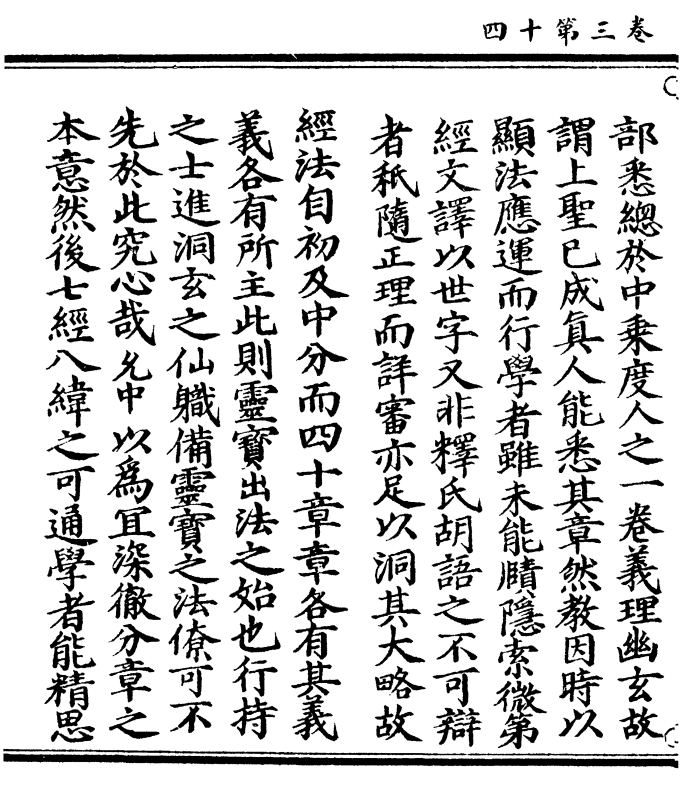 卷三第十四
部悉總於中乗度人之一卷義理幽玄故
謂上聖已成眞人能悉其章然教因時以
顯法應運而行學者雖未能賾隱索微第
經文譯以世字又非釋氏胡語之不可辯
者秖隨正理而詳審亦足以洞其大略故
經法自初及中分而四十章章各有其義
義各有所主此則靈寳出法之始也行持
之士進洞玄之仙職備靈寳之法僚可不
先於此究心哉允中以爲冝深徹分章之
本意然後七經八緯之可通學者能精思